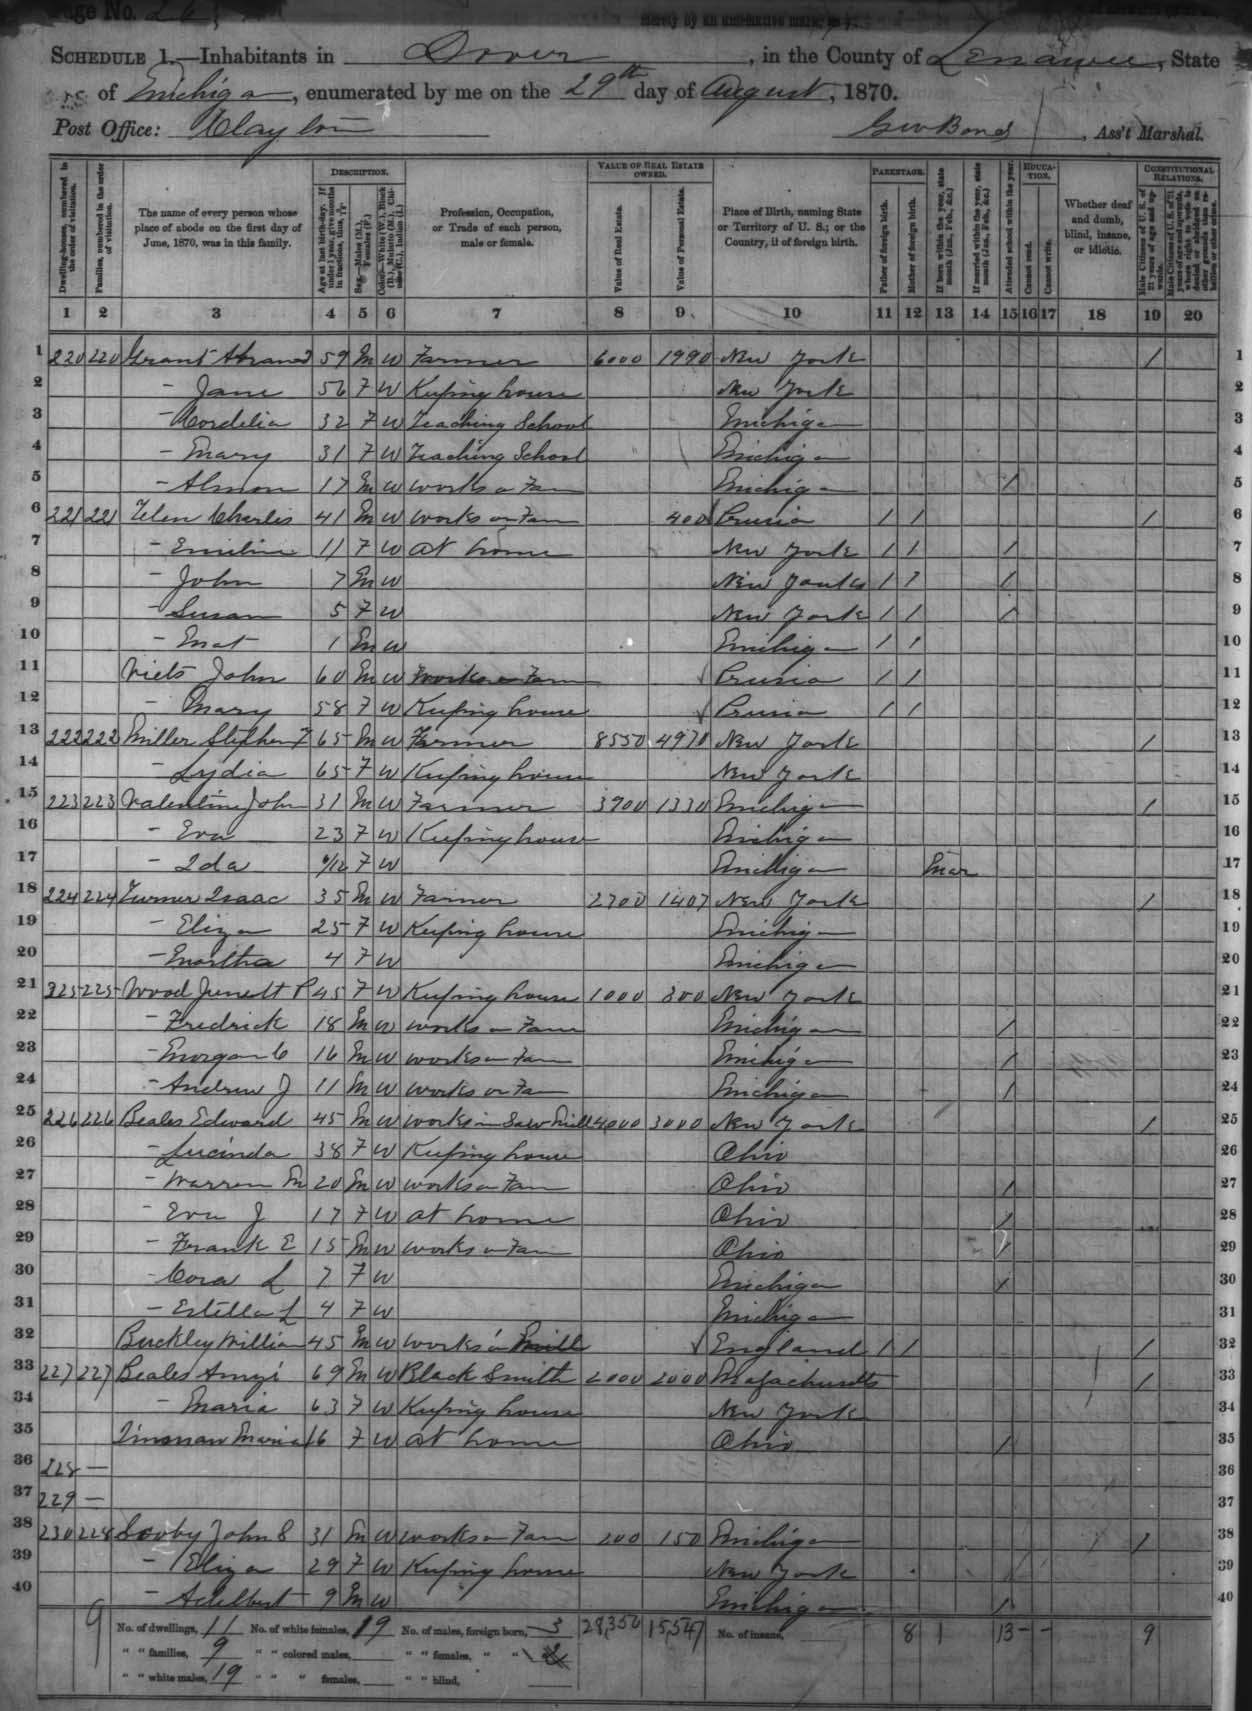 Page No. 26
SCHEDULE 1.—Inhabitants in Dover, in the County of Lenawee, State
of Michigan, enumerated by me on the 29th day of August, 1870.
Post Office: Clayton Geo Bond, Ass't Marshal.
DESCRIPTION. VALUE OF REAL ESTATE OWNED. PARENTAGE. EDUCATION. CONSTITUTIONAL RELATIONS.
Dwelling-houses, numbered in the order of visitation.
Families, numbered in the order of visitation.
The name of every person whose place of abode on the first day of June, 1870, was in this family.
Age at last birth-day. If under 1 year, give months in fractions, thus,
Sex.—Males (M.), Females (F.)
Color.—White (W.), Black (B.), Mulatto (M.), Chinese (C.), Indian (I.)
Profession, Occupation, or Trade of each person, male or female.
Value of Real Estate.
Value of Personal Estate.
Place of Birth, naming State or Territory of U. S.; or the Country, if of foreign birth.
Father of foreign birth.
Mother of foreign birth.
If born within the year, state month (Jan., Feb., &c.)
If married within the year, state month (Jan., Feb., &c.)
Attended school within the year.
Cannot read.
Cannot write.
Whether deaf and dumb, blind, insane, or idiotic.
Male Citizens of U. S. of 21 years of age and upwards.
Male Citizens of U. S. of 21 years of age and upwards, whose right to vote is denied or abridged on other grounds than rebellion or other crime.
1 2 3 4 5 6 7 8 9 10 11 12 13 14 15 16 17 18 19 20
1 220 220 Grant 59 M W Farmer 6000 1990 New York / 1
2 – Jane 56 F W Keeping house New York 2
3 – Cordelia 32 F W Teaching School Michigan 3
4 – Mary 31 F W Teaching School Michigan 4
5 – Almon 17 M W works on Farm Michigan / 5
6 221 221 Charles 41 M W works on Farm 400 Prusia / / / 6
7 – Emeline 11 F W at home New York / / / 7
8 – John 7 M W New York / / / 8
9 – Susan 5 F W New York / / / 9
10 – 1 M W Michigan / / 10
11 Viets John 60 M W Works on Farm Prusia / / 11
12 – Mary 58 F W Keeping house Prusia / / 12
13 222 222 Miller Stephen 65 M W Farmer 8550 4970 New York / 13
14 – Lydia 65 F W Keeping house New York 14
15 223 223 Valentine John 31 M W Farmer 3900 1330 Michigan / 15
16 – Eva 23 F W Keeping house Michigan 16
17 – Ida /12 F W Michigan Mar 17
18 224 224 Turner Isaac 35 M W Farmer 2700 1407 New York / 18
19 – Eliza 25 F W Keeping house Michigan 19
20 – Martha 4 F W Michigan 20
21 225 225 Wood P 45 F W Keeping house 1000 300 New York 21
22 – Fredrick 18 M W works on Farm Michigan / 22
23 – Morgan C 16 M W works on Farm Michigan / 23
24 – Andrew J 11 M W works on Farm Michigan / 24
25 226 226 Beales Edward 45 M W works in Saw Mill 4000 3000 New York / 25
26 – Lucinda 38 F W Keeping house Ohio 26
27 – Warren M 20 M W works on Farm Ohio / 27
28 – Eva J 17 F W at home Ohio / 28
29 – Frank E 15 M W works on Farm Ohio / 29
30 – Cora L 7 F W Michigan / 30
31 – Estella L 4 F W Michigan 31
32 Buckley William 45 M W works in Mill England / / / 32
33 227 227 Beales Amzi 69 M W Black Smith 2000 2000 Masachusetts / 33
34 – Maria 63 F W Keeping house New York 34
35 Inman Maria 16 F W at home Ohio / 35
36 228 — 36
37 229 — 37
38 230 228 John S 31 M W works on Farm 200 150 Michigan / 38
39 – Eliza 29 F W Keeping house New York 39
40 – Adelbert 9 M W Michigan / 40
9 No. of dwellings, 11 No. of white females, 19 No. of males, foreign born, 3 28,350 15,547 No. of insane, 8 1 13 - - 9
" " families, 9 " " colored males, " " females, " "
" " white males, 19 " " " females, " " blind,